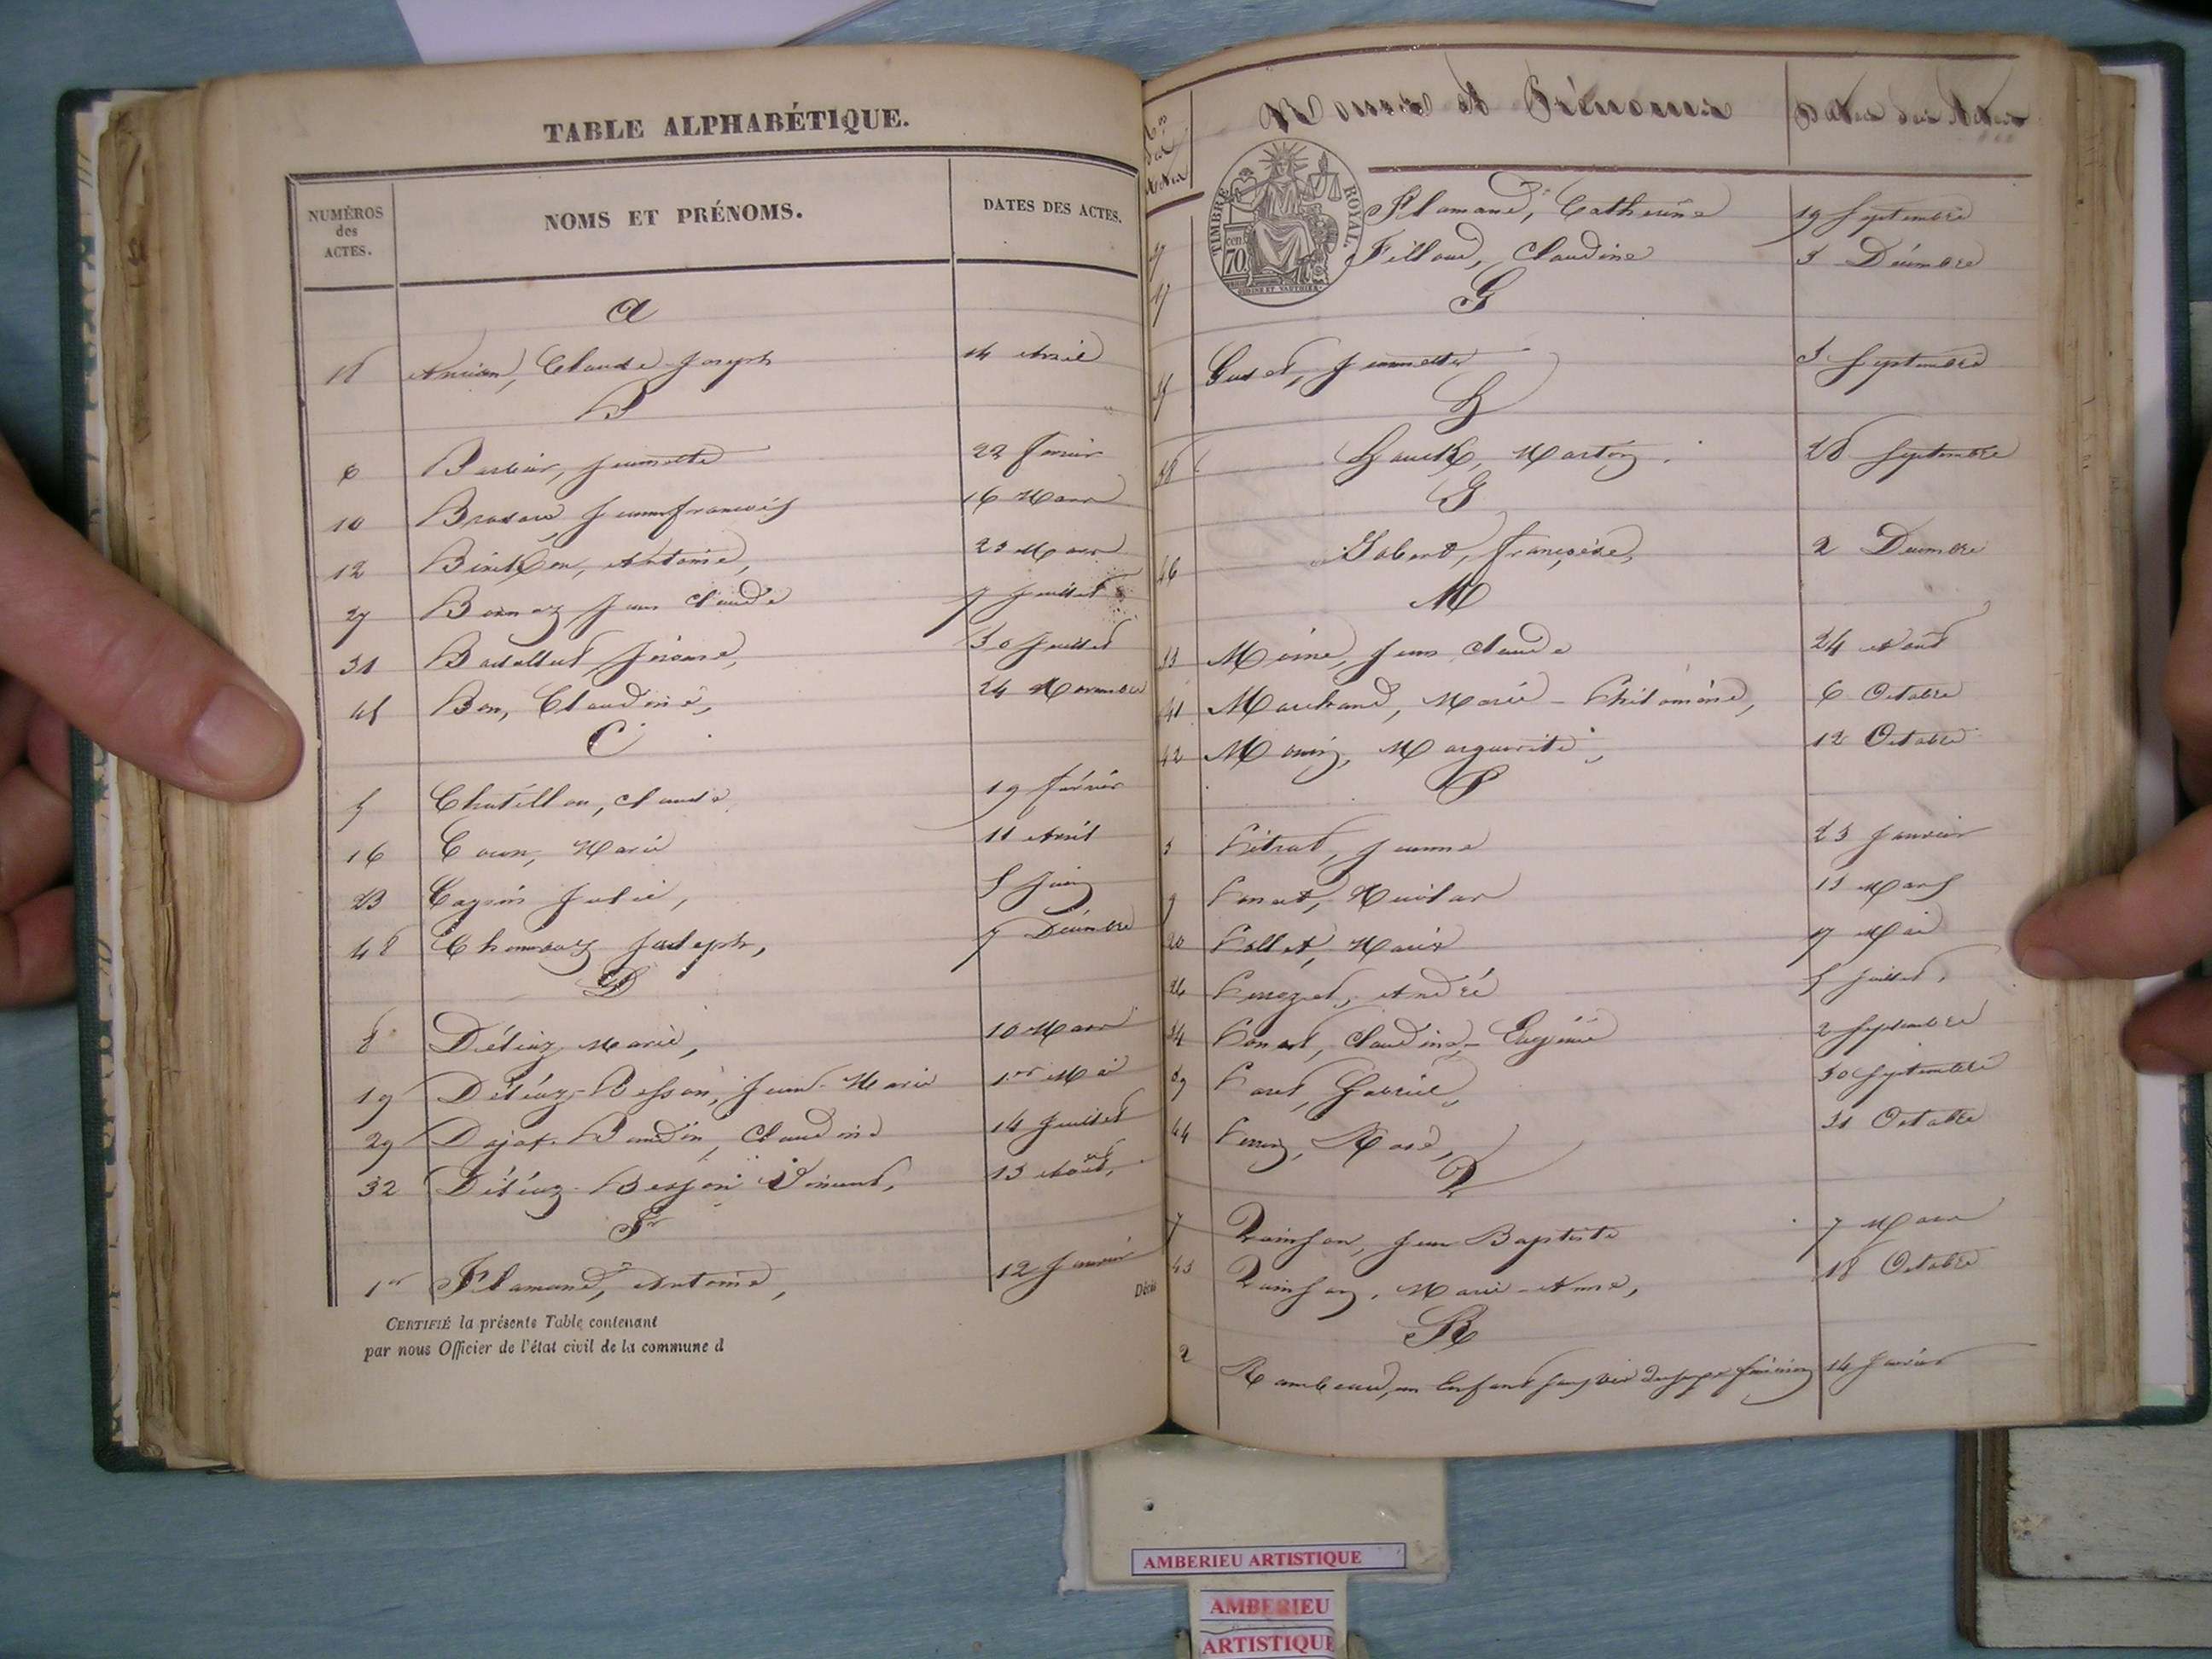 TABLE ALPHABÉTIQUE.
NUMÉROS des ACTES.
NOMS ET PRÉNOMS.
DATES DES ACTES.
A
18 Claude Joseph 14 Avril
B
6 Barbier, Jeannette 22 février
10 Jean françois 16 Mars
12 Antoine, 23 Mars
27 Bornaz Jean Claude 7 Juillet
31 Jérome, 30 Juillet
45 Bon, Claudine, 24 Novembre
C
5 Chatillon, Claude 19 février
16 Marie 11 Avril
23 Julie, 5 Juin
48 Joseph, 7 Décembre
D
8 Déléaz Marie, 10 Mars
19 Déléaz-Besson, Jean-Marie 1er Mai
29 Claudine 14 Juillet
32 Déléaz-Besson Vincent, 13 Août,
F
1er Flamand, Antoine, 12 Janvier
CERTIFIÉ la présente Table contenant
par nous Officier de l'état civil de la commune d
Décès
Nos des Actes
Noms et Prénoms
Dates des Actes
TIMBRE ROYAL.
cen. 70
Flamand, Catherine 19 Septembre
Filloud, Claudine 3 Décembre
G
Jeannette 3 Septembre
H
38 Martin 28 Septembre
J
46 Jobert, françoise, 2 Décembre
M
33 Moine, Jean Claude 24 Août
41 Marchand, Marie-Philomène, 6 Octobre
42 Marguerite, 12 Octobre
P
3 Pitrat, Jeanne 23 Janvier
9 Ponset, Nicolas 13 Mars
20 Pollet, Marie 17 Mai
26 Perrozet, André 5 Juillet,
34 Ponset, Claudine-Eugénie 2 Septembre
39 Gabriel, 30 Septembre
44 Perrin, Rose, 31 Octobre
Q
7 Quinson, Jean Baptiste 7 Mars
43 Quinson, Marie-Anne, 18 Octobre
R
2 Rambeaud, un Enfant sans vie du sexe féminin 14 Janvier
AMBERIEU ARTISTIQUE
AMBERIEU
ARTISTIQUE